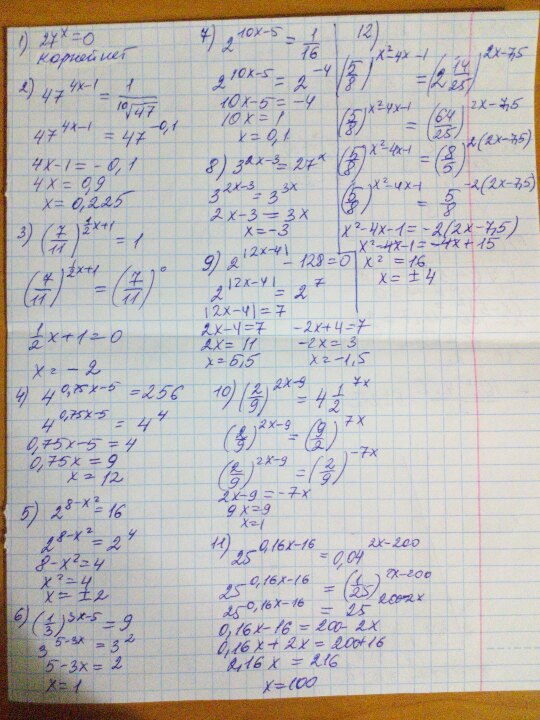 1) 27^x = 0
корней нет
2) 47^(4x-1) = 1/¹⁰√47
47^(4x-1) = 47^(-0,1)
4x-1 = -0,1
4x = 0,9
x = 0,225
3) (7/11)^(1/2x+1) = 1
(7/11)^(1/2x+1) = (7/11)^0
1/2 x + 1 = 0
x = -2
4) 4^(0,75x-5) = 256
4^(0,75x-5) = 4^4
0,75x-5 = 4
0,75x = 9
x = 12
5) 2^(8-x²) = 16
2^(8-x²) = 2^4
8-x² = 4
x² = 4
x = ±2
6) (1/3)^(3x-5) = 9
3^(5-3x) = 3²
5-3x = 2
x = 1
7) 2^(10x-5) = 1/16
2^(10x-5) = 2^(-4)
10x-5 = -4
10x = 1
x = 0,1
8) 3^(2x-3) = 27^x
3^(2x-3) = 3^(3x)
2x-3 = 3x
x = -3
9) 2^|2x-4| - 128 = 0
2^|2x-4| = 2^7
|2x-4| = 7
2x-4 = 7 -2x+4 = 7
2x = 11 -2x = 3
x = 5,5 x = -1,5
10) (2/9)^(2x-9) = 4 1/2^(7x)
(2/9)^(2x-9) = (9/2)^(7x)
(2/9)^(2x-9) = (2/9)^(-7x)
2x-9 = -7x
9x = 9
x = 1
11) 25^(0,16x-16) = 0,04^(2x-200)
25^(0,16x-16) = (1/25)^(2x-200)
25^(0,16x-16) = 25^(200-2x)
0,16x-16 = 200-2x
0,16x+2x = 200+16
2,16x = 216
x = 100
12)
(5/8)^(x²-4x-1) = (2 14/25)^(2x-7,5)
(5/8)^(x²-4x-1) = (64/25)^(2x-7,5)
(5/8)^(x²-4x-1) = (8/5)^(2(2x-7,5))
(5/8)^(x²-4x-1) = 5/8^(-2(2x-7,5))
x²-4x-1 = -2(2x-7,5)
x²-4x-1 = -4x+15
x² = 16
x = ±4